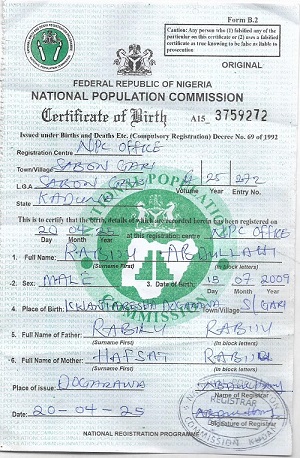 Form B.2
Caution: Any person who (1) falsified any of the
particular on this certificate or (2) uses a falsified
certificate as true knowing to be false as liable to
prosecution
ORIGINAL
FEDERAL REPUBLIC OF NIGERIA
NATIONAL POPULATION COMMISSION
Certificate of Birth A15 3759272
Issued under Births and Deaths Etc. (Compulsory Registration) Decree No. 69 of 1992
Registration Centre NPC OFFICE
Town/Village SABON GARI 25 272
L.G.A SABON GARI Volume Year Entry No.
State KADUNA
This is to certify that the birth, details of which are recorded herein has been registered on
20 04 25 NPC OFFICE
Day Month Year at this registration centre
1. Full Name: RABIU ABDULLAHI
(Surname First) (In block letters)
2. Sex: MALE 3. Date of Birth: 07 2009
Day Month Year
4. Place of Birth: DOGARAWA S/GARI
Town/Village
5. Full Name of Father: RABIU RABIU
(Surname First) (In block letters)
6. Full Name of Mother: HAFSAT RABIU
(Surname First) (In block letters)
Place of issue: DOGARAWA
Name of Registrar
REGISTRAR
Date: 20-04-25
Signature of Registrar
NATIONAL REGISTRATION PROGRAMME